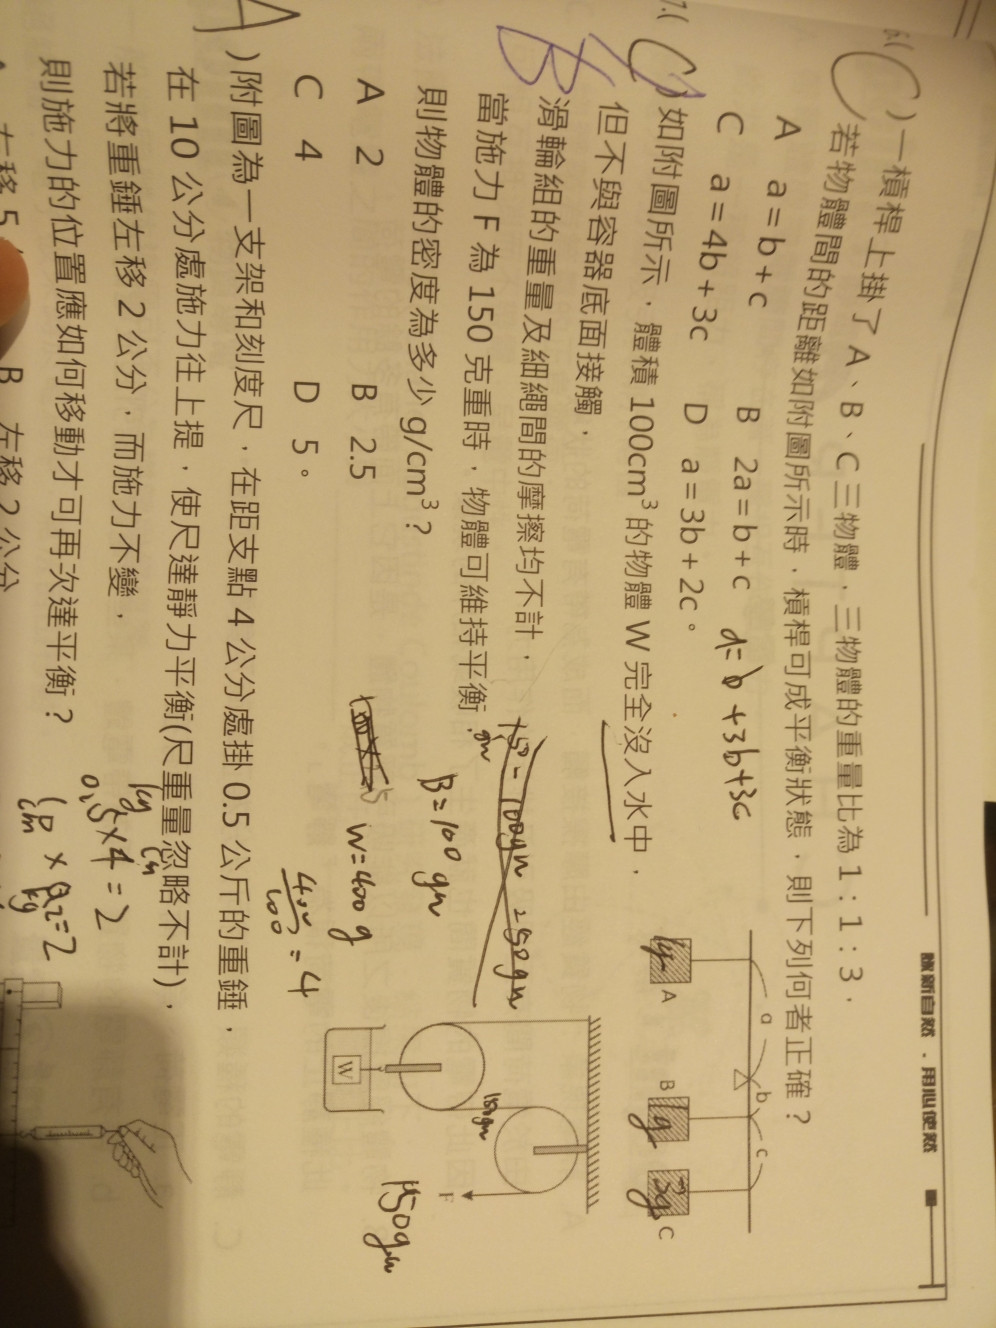 脈新自然．用心使然
6.( C )一槓桿上掛了 A、B、C三物體，三物體的重量比為 1：1：3，
若物體間的距離如附圖所示時，槓桿可成平衡狀態，則下列何者正確？
A a = b + c B 2a = b + c
C a = 4b + 3c D a = 3b + 2c。
a = b + 3b + 3c
a
b
c
1g A
B 1g
3g C
7.( C )如附圖所示，體積 100cm³ 的物體 W 完全沒入水中，
B
但不與容器底面接觸，
滑輪組的重量及細繩間的摩擦均不計，
當施力 F 為 150 克重時，物體可維持平衡，
則物體的密度為多少 g/cm³？
A 2 B 2.5
C 4 D 5。
B = 100 gw
W = 400 g
400/100 = 4
W
150gw
F
150gw
A )附圖為一支架和刻度尺，在距支點 4 公分處掛 0.5 公斤的重錘，
在 10 公分處施力往上提，使尺達靜力平衡(尺重量忽略不計)，
若將重錘左移 2 公分，而施力不變，
則施力的位置應如何移動才可再次達平衡？
kg cm
0.5 × 4 = 2
10 × 0.2 = 2
cm kg
左移 5
B 左移 2 公分